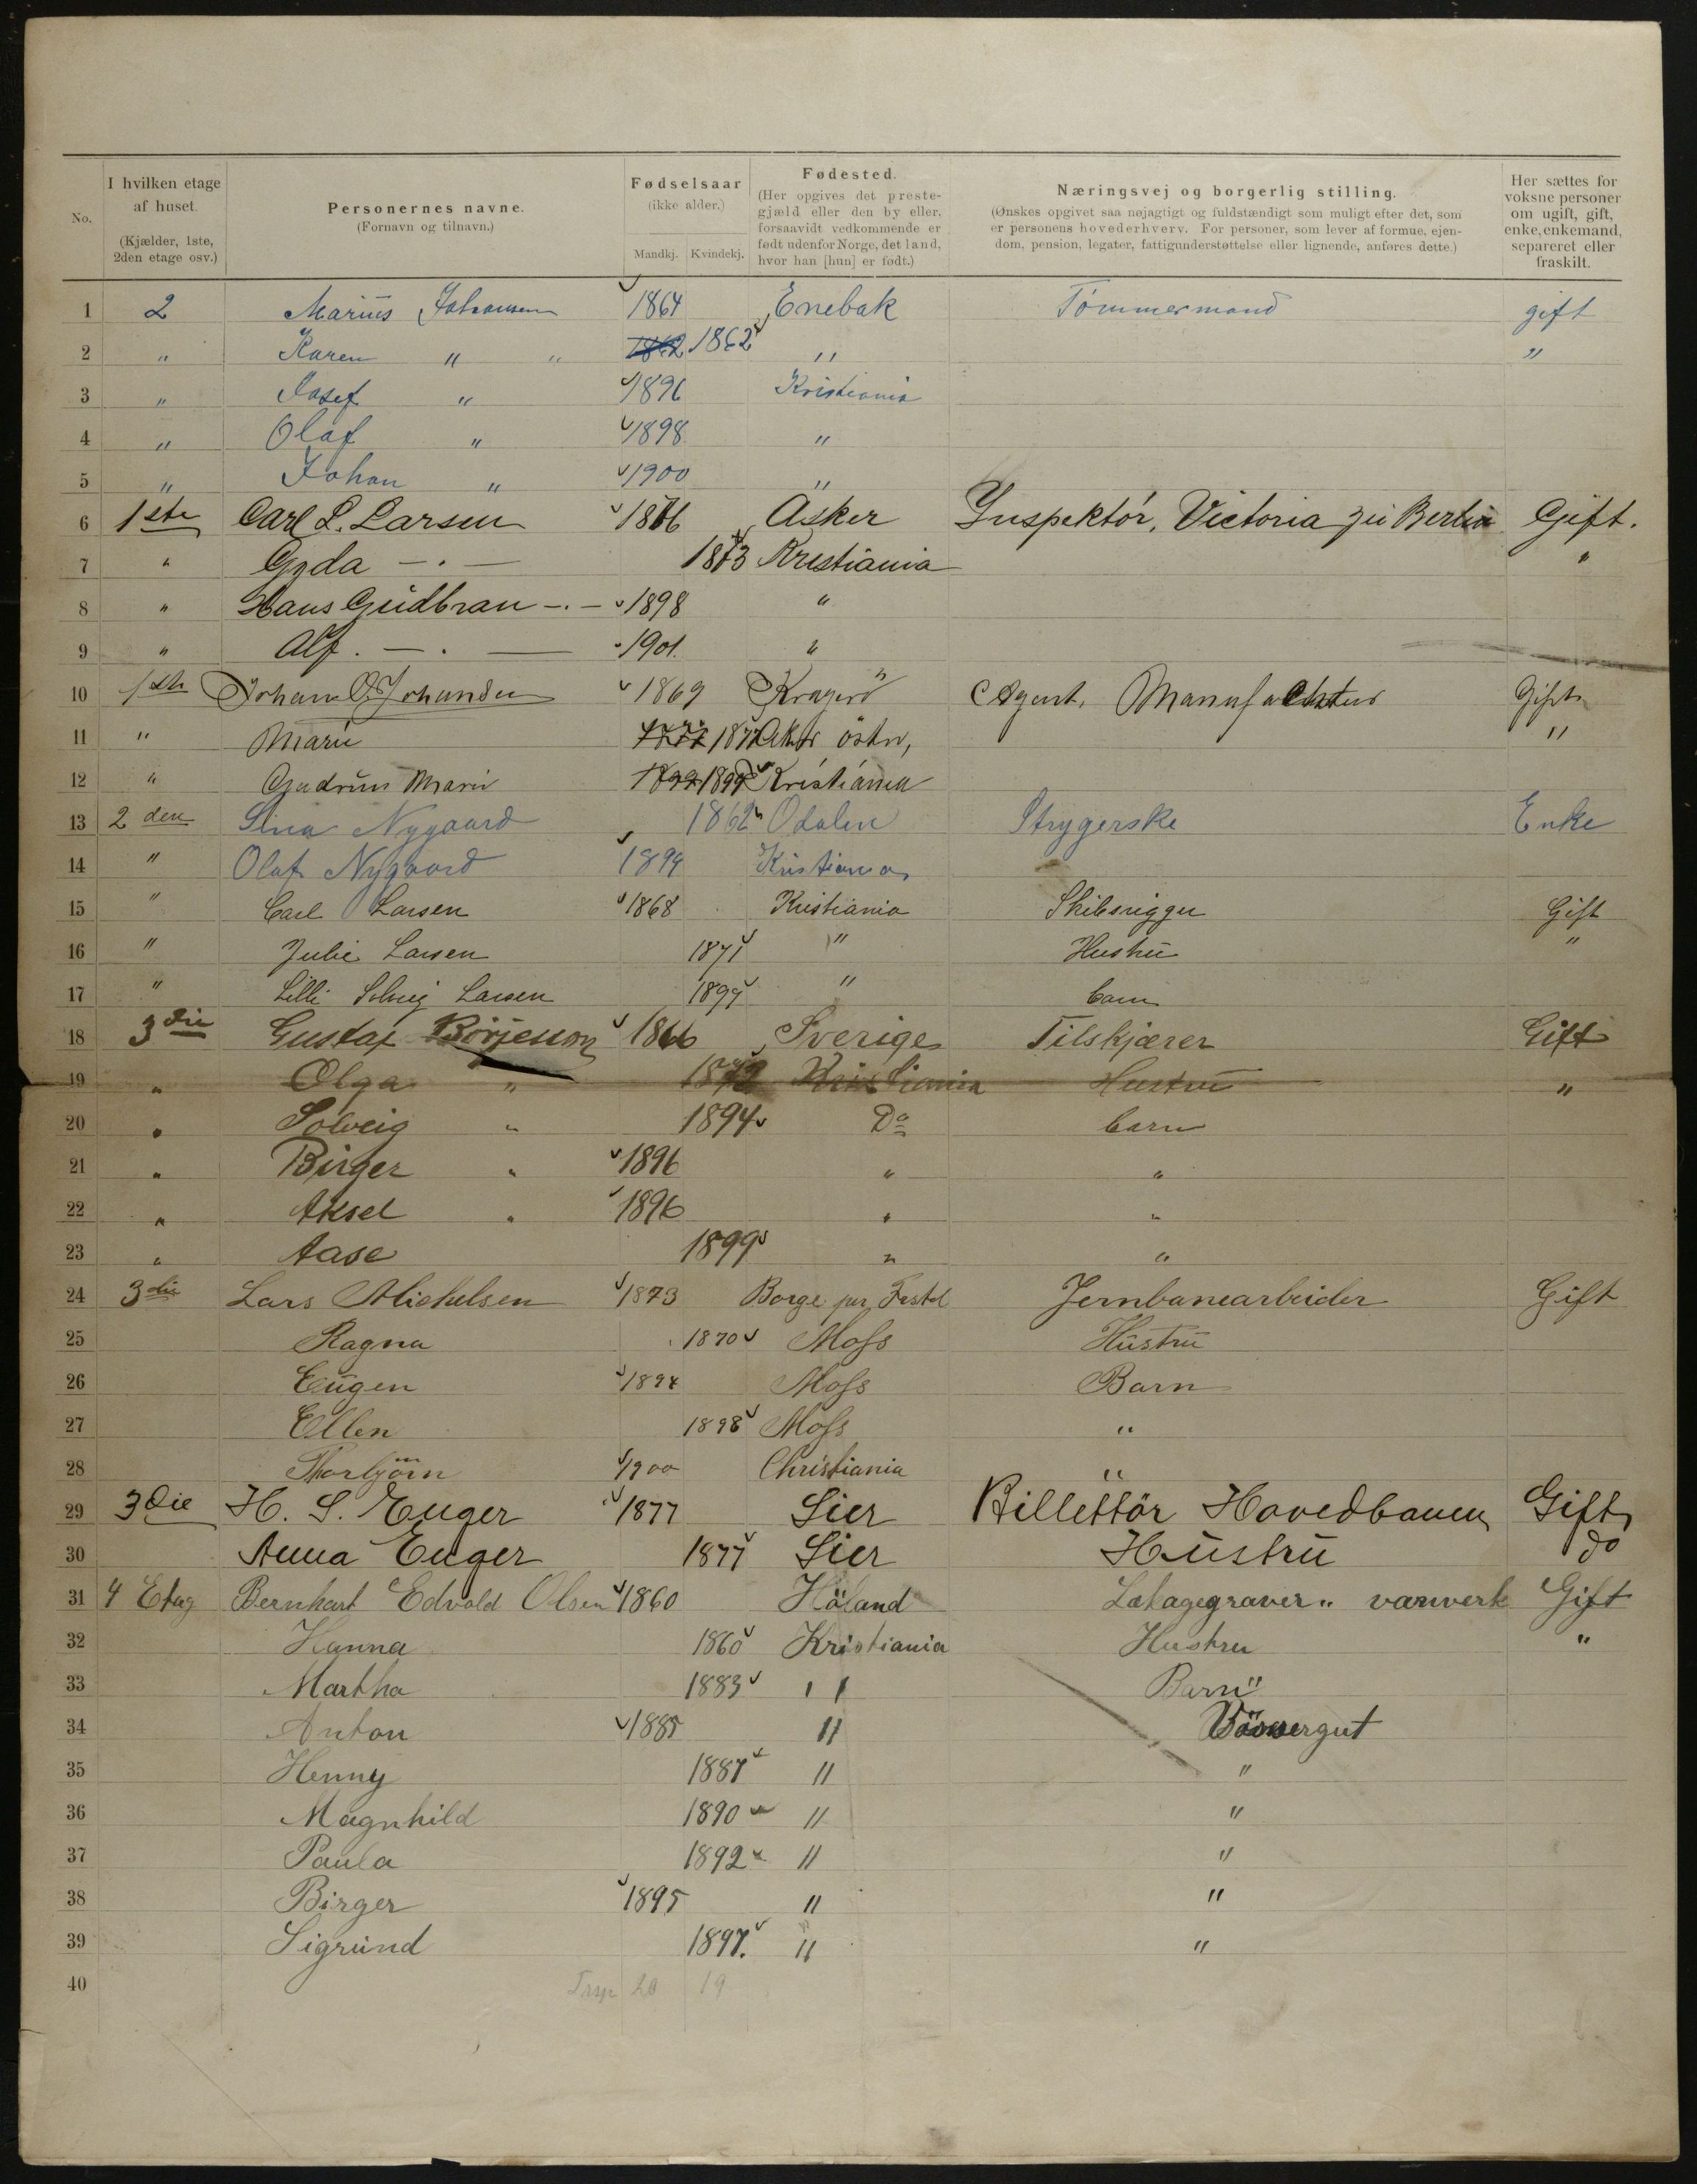 No.
I hvilken etage af huset.
(Kjælder, 1ste, 2den etage osv.)
Personernes navne.
(Fornavn og tilnavn.)
Fødselsaar
(ikke alder.)
Mandkj. Kvindekj.
Fødested.
(Her opgives det prestegjæld eller den by eller, forsaavidt vedkommende er født udenfor Norge, det land, hvor han [hun] er født.)
Næringsvej og borgerlig stilling.
(Ønskes opgivet saa nøjagtigt og fuldstændigt som muligt efter det, som er personens hovederhverv. For personer, som lever af formue, ejendom, pension, legater, fattigunderstøttelse eller lignende, anføres dette.)
Her sættes for voksne personer om ugift, gift, enke, enkemand, separeret eller fraskilt.
1 2 Marius Johansen 1864 Enebak Tømmermand gift
2 " Karen " " 1862 1862 " "
3 " Josef " 1896 Kristiania
4 " Olaf " 1898 "
5 " Johan " 1900 "
6 1ste Carl L. Larsen 1866 Asker Inspektør, Victoria zu Berlin Gift.
7 " Gyda — . — 1873 Kristiania "
8 " Hans Gudbran — . — 1898 "
9 " Alf . — . — 1901. "
10 1ste Johan O. Johansen 1869 Kragerö Agent, Manufacktur Gift
11 " Marie 1877 Aker östn, "
12 " Gudrun Marie 1899 1899 Kristiania
13 2 den Lina Nygaard 1862 Odalen Strygerske Enke
14 " Olaf Nygaard 1899 Kristiania
15 " Carl Larsen 1868 Kristiania Skibsrigger Gift
16 " Julie Larsen 1871 " Hustru "
17 " Lilli Solveig Larsen 1899 " barn
18 3die Gustaf Börjesson 1866 Sverige Tilskjærer Gift
19 " Olga " 1872 Kristiania Hustru "
20 " Solveig " 1894 Do barn
21 " Birger " 1896 " "
22 " Aksel " 1896 " "
23 " Aase 1899 " "
24 3die Lars Michelsen 1873 Borge pr. Frstd Jernbanearbeider Gift
25 Ragna 1870 Moss Hustru
26 Eugen 1894 Moss Barn
27 Ellen 1898 Moss "
28 Thorbjörn 1900 Christiania "
29 3die H. S. Enger 1877 Lier Billettör Hovedbanen Gift
30 Anna Enger 1877 Lier Hustru do
31 4 Etag Bernhart Edvald Olsen 1860 Höland Gift
32 Hanna 1860 Kristiania Hustru "
33 Martha 1883 " Barn "
34 Anton 1885 "
35 Henny 1887 " "
36 Magnhild 1890 " "
37 Paula 1892 " "
38 Birger 1895 " "
39 Sigrund 1897. " "
40 20 19